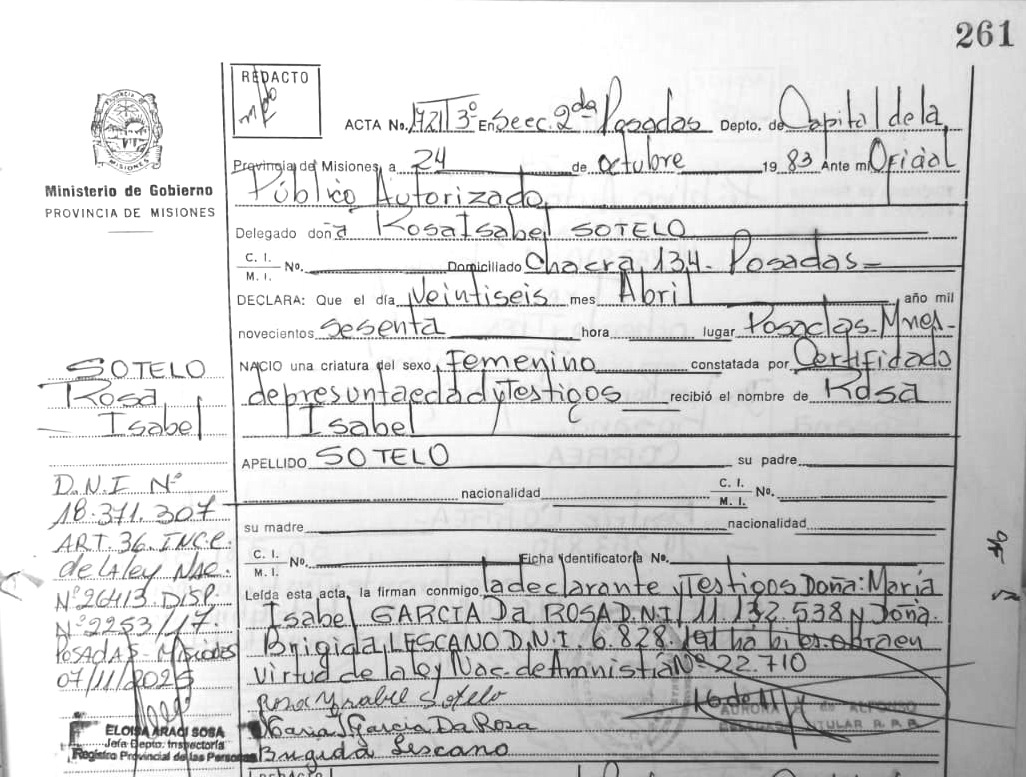 261
REDACTO
ACTA No. 1721 3º En Secc. 2da Posadas Depto. de Capital de la
Provincia de Misiones, a 24 de octubre 1983 Ante mi Oficial
Público Autorizado
Ministerio de Gobierno
PROVINCIA DE MISIONES
Delegado doña Rosa Isabel SOTELO
C. I.
M. I. No. Domiciliado Chacra 134 - Posadas
DECLARA: Que el día Veintiseis mes Abril año mil
novecientos sesenta hora lugar Posadas - Mnes -
NACIO una criatura del sexo Femenino constatada por Certificado
de presunta edad y Testigos recibió el nombre de Rosa
Isabel
APELLIDO SOTELO su padre
nacionalidad C. I.
M. I. No.
su madre nacionalidad
C. I.
M. I. No. Ficha Identificatoria No.
Leída esta acta, la firman conmigo la declarante y Testigos Doña: María
Isabel GARCIA Da ROSA D.N.I. 11.132.538 y Doña
Brigida LESCANO D.N.I. 6.828. habiles obra en
virtud de la ley Nac. de Amnistía Nº 22.710
Rosa Ysabel Sotelo
Maria I Garcia Da Rosa
Brugida Lescano
AURORA de ALFONSO
TITULAR R. P. P.
SOTELO
Rosa
Isabel
D.N.I Nº
18.371.307
ART. 36. INC C.
de la ley NAC.
Nº 26413 DISP.
Nº 2253/17.
POSADAS - Misiones
07/11/2025
ELOISA ARACI SOSA
Jefa Depto. Inspectoría
Registro Provincial de las Personas